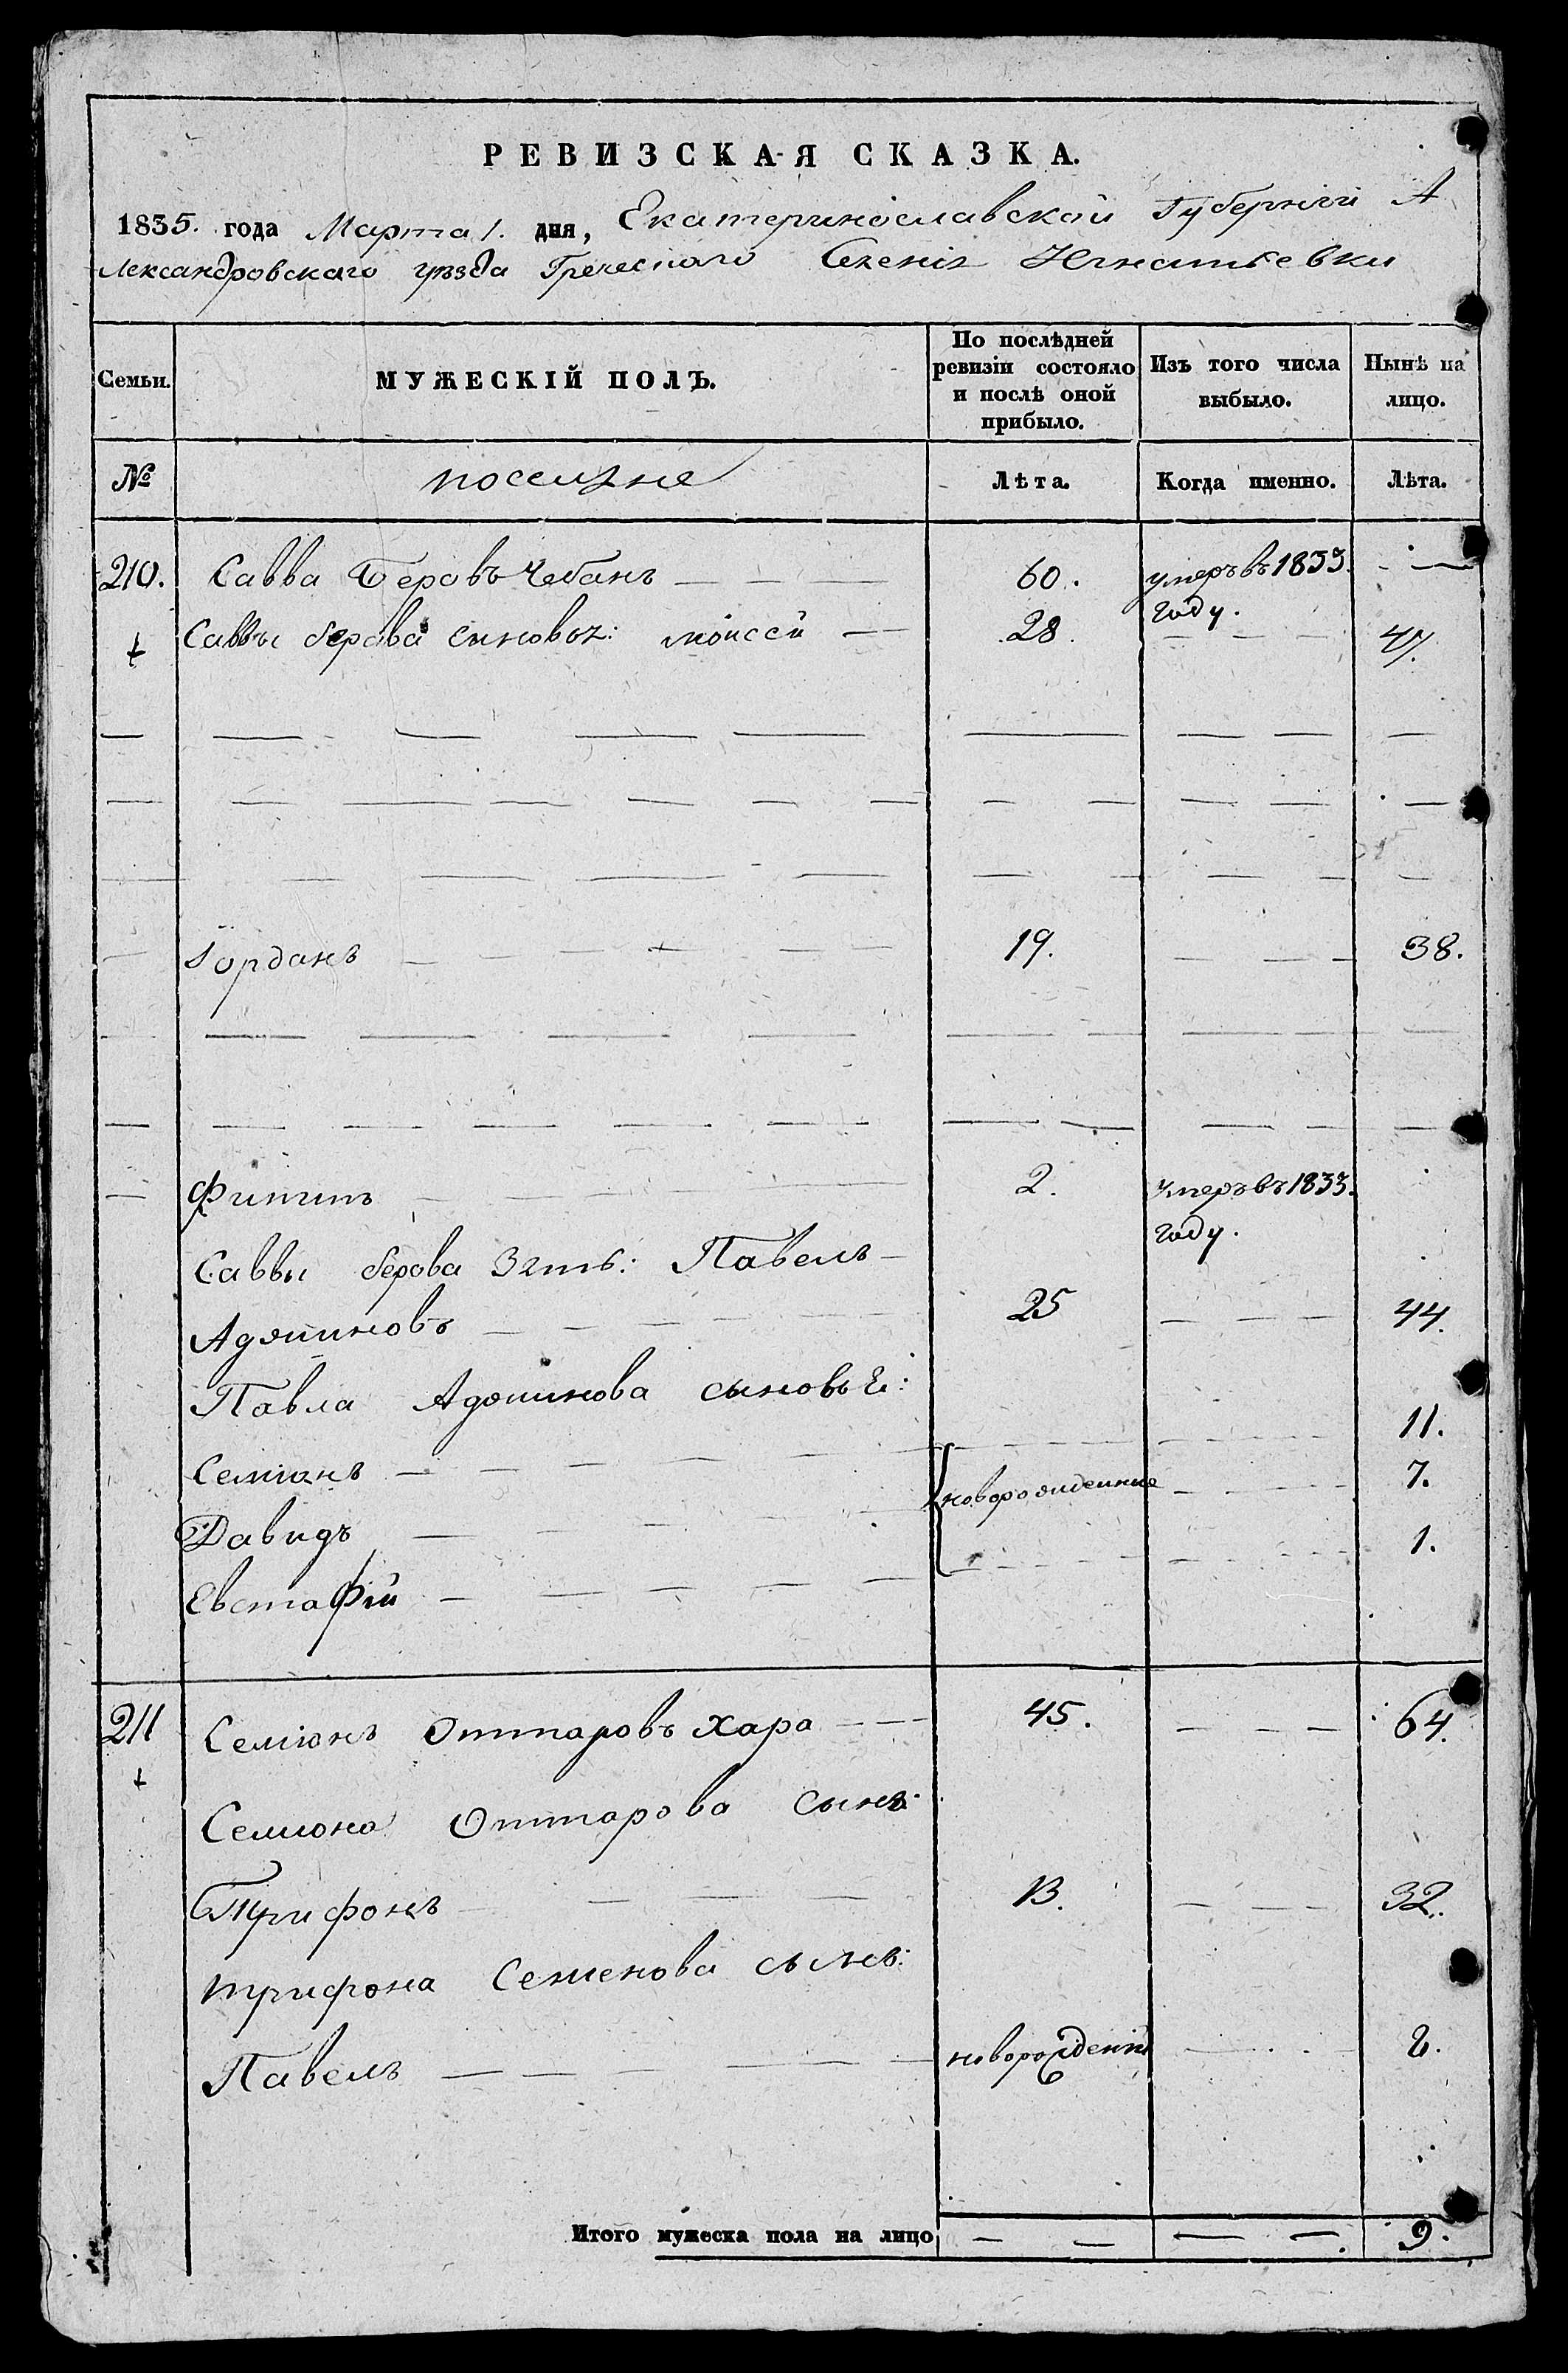 РЕВИЗСКАЯ СКАЗКА.
1835. года Марта 1. дня, Екатеринославской Губерніи А
лександровскаго уѣзда Греческаго Селенія Игнатьевки
Семьи.
МУЖЕСКІЙ ПОЛЪ.
По послѣдней ревизіи состояло и послѣ оной прибыло.
Изъ того числа выбыло.
Нынѣ на лицо.
№
поселяне
Лѣта.
Когда именно.
Лѣта.
210. Савва Беровъ Чебанъ — — — 60. умеръ въ 1833. — —
году.
Саввы берова сыновья: моисей — — 28. — — — 47.
Іорданъ — — — — — 19. — — — 38.
Филипъ — — — 2. умеръ въ 1833.
году.
Саввы берова зять: Павелъ —
Адяминовъ — — — — — 25 — — — 44.
Павла Адоминова сыновьѣ:
Семіонъ — — — — — 11.
Давидъ — — — — новорожденные — — — 7.
Евстафій — — — — — 1.
211 Семіонъ Оттаровъ Хара — — — 45. — — — 64.
Семиона Оттарова сынъ:
Трифонъ — — — 13. — — — 32.
трифона Семенова сынъ:
Павелъ — — — — новорожденн — — — 2.
Итого мужеска пола на лицо — — — — 9.